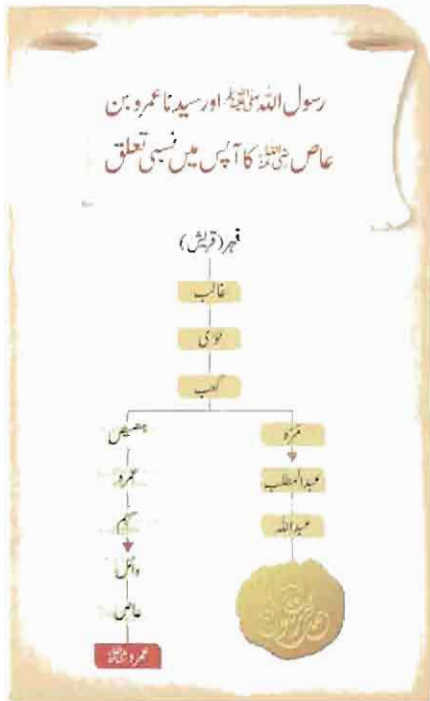 رسول اللہ ﷺ اور سیدنا عمرو بن
عاص رضی اللہ عنہ کا آپس میں نسبی تعلق
فہر (قریش)
غالب
لوی
کعب
مرہ
ہصیص
عبدالمطلب
عمرو
عبداللہ
سہم
وائل
عاص
عمرو رضی اللہ عنہ